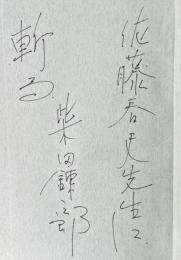 佐藤春夫先生に
柴田錬三郎